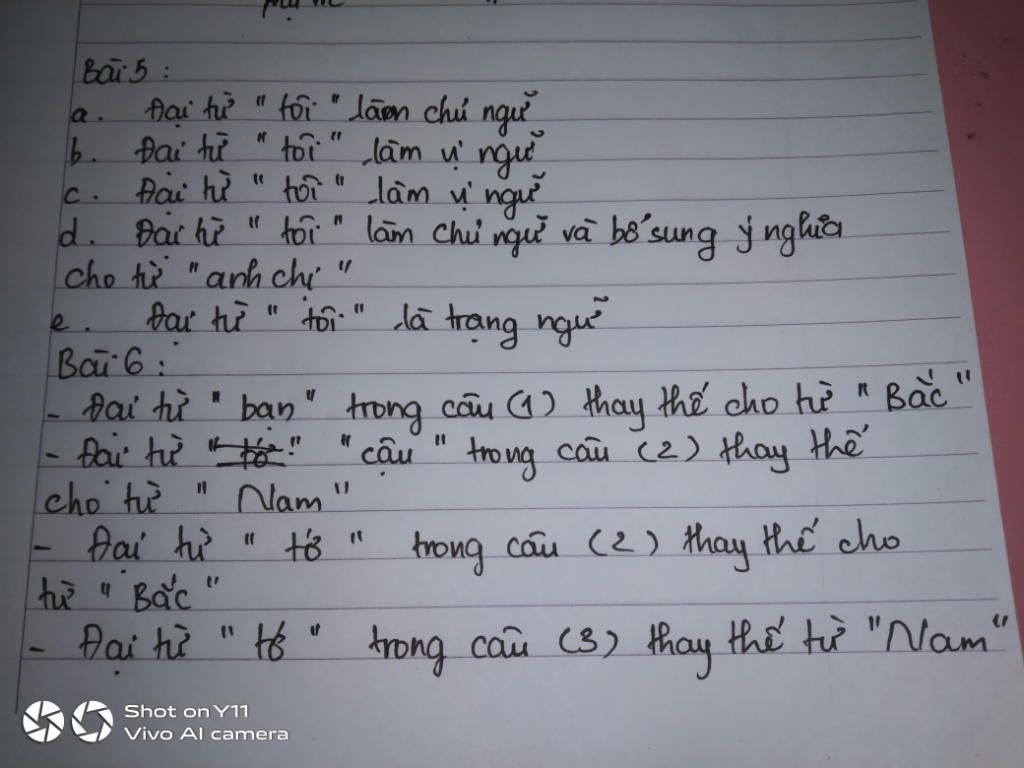 Bài 5 :
a. Đại từ " tôi " làm chủ ngữ
b. Đại từ " tôi " làm vị ngữ
c. Đại từ " tôi " làm vị ngữ
d. Đại từ " tôi " làm chủ ngữ và bổ sung ý nghĩa
cho từ " anh chị "
e. Đại từ " tôi " là trạng ngữ
Bài 6 :
- Đại từ " bạn " trong câu (1) thay thế cho từ " Bắc "
- Đại từ " tớ " " cậu " trong câu (2) thay thế
cho từ " Nam "
- Đại từ " tớ " trong câu (2) thay thế cho
từ " Bắc "
- Đại từ " tớ " trong câu (3) thay thế từ " Nam "
Shot on Y11
Vivo AI camera